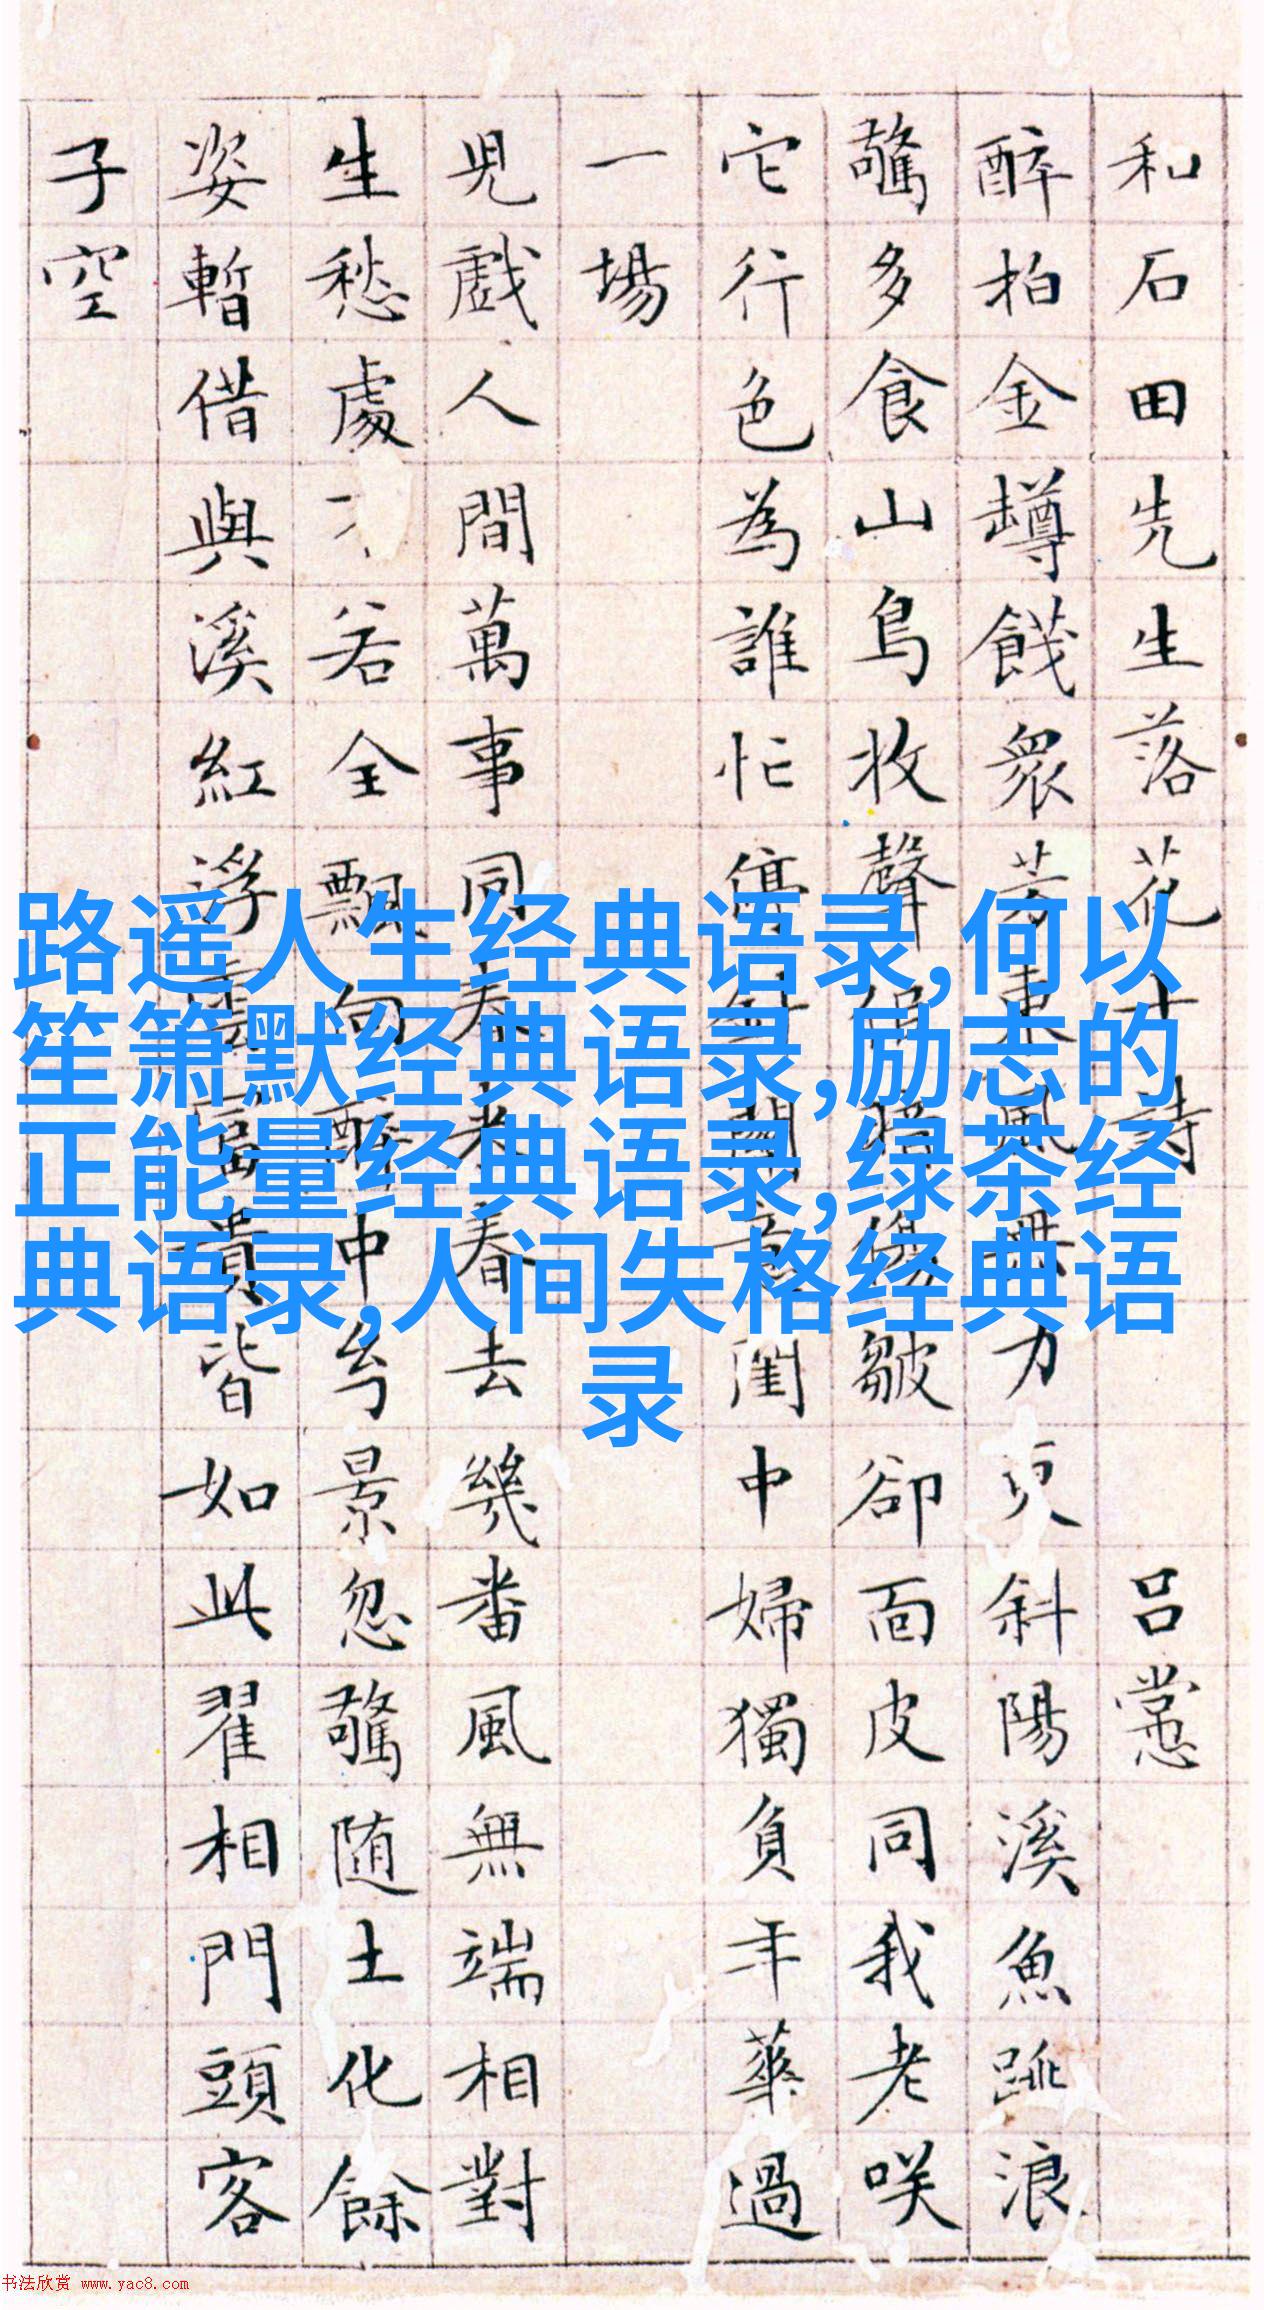 和石田先生落花十詩 呂
醉拍金罇餞衆芳東風無力更斜陽溪魚跳浪
驚多食山鳥收聲皺卻面皮同我老咲
它行色為誰忙停針閨中婦獨負年華過
一場
児戲人間萬事同春老春去幾番風無端相對
生愁處不若全飄向醉中景忽驚随土化餘
姿暫借與溪紅浮雲富貴皆如此翟相門頭客
子空
路遥人生经典语录,何以
笙箫默经典语录,励志的
正能量经典语录,绿茶经
典语录,人间失格经典语
录
书法欣赏 www.yac8.com